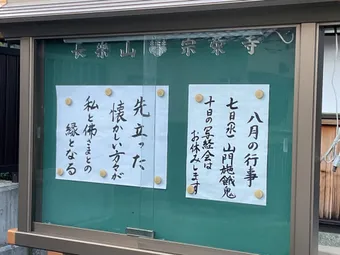 長楽山 宗泉寺
八月の行事
七日(水)山門施餓鬼
十日の写経会は
お休みします
先立った
懐かしい方々が
私と佛さまとの
縁となる